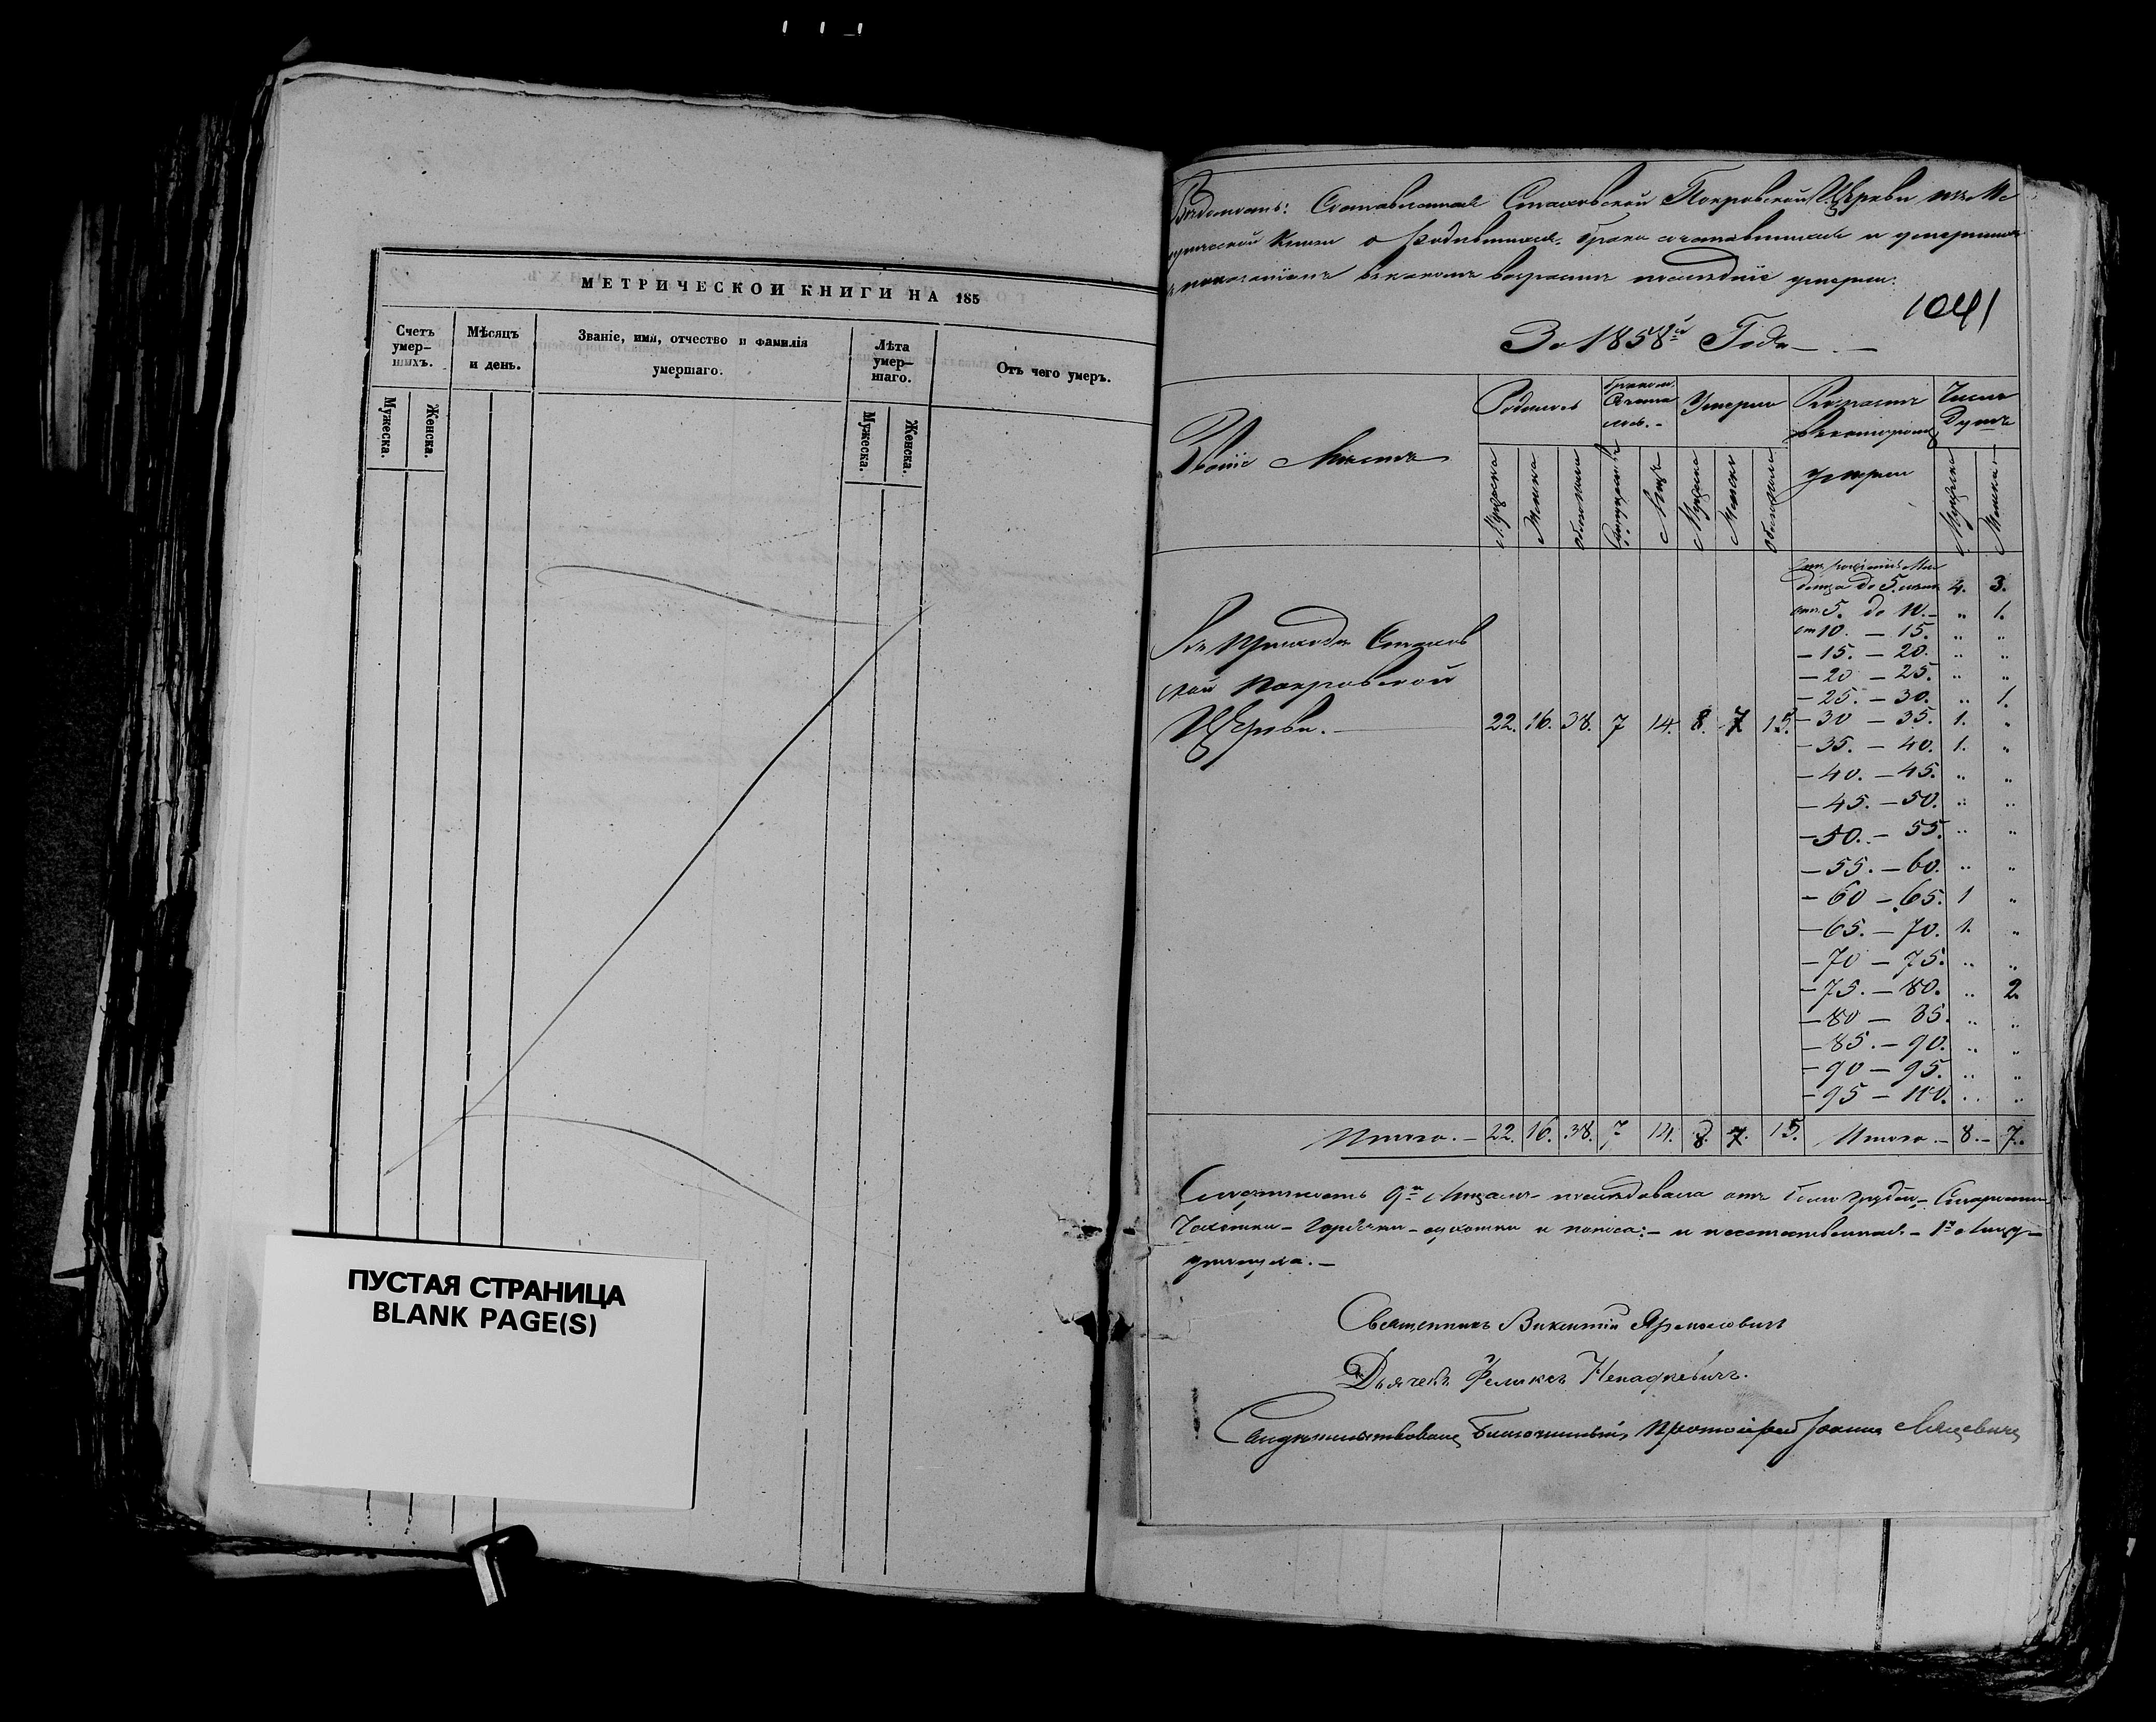 МЕТРИЧЕСКОЙ КНИГИ НА 185
Счетъ умер-шихъ.
Мужеска.
Женска.
Мѣсяцъ и день.
Званіе, имя, отчество и фамилія умершаго.
Лѣта умер-шаго.
Мужеска.
Женска.
Отъ чего умеръ.
ПУСТАЯ СТРАНИЦА
BLANK PAGE(S)
Вѣдомость: Составленная Стаховской Покровской Церкви изъ Ме
трической Книги о Родившихся, бракомъ сочетавшихся и умершихъ
показаніемъ въ какомъ возрастѣ послѣдніе умерли.
1041
За 1858й Годъ
Званіе Мѣстъ
Родилось
Мужеска
Женска
обоего пола
Бракомъ Сочета лось.
Супружествъ
Лицъ
Умерло
Мужеска
Женска
обоего пола
Возрастъ въ которомъ умерли
Число Душъ
Мужеска
Женска
Въ Приходѣ Стахов
ской Покровской
Церкви. 22. 16. 38. 7 14. 8. 7 15.
до 5. 4. 3.
отъ 5. до 10. „ 1.
от 10. — 15. „ „
— 15. — 20. „ „
— 20 — 25. „ „
— 25. — 30. „ 1.
— 30 — 35. 1. „
— 35. — 40. 1. „
— 40. — 45. „ „
— 45. — 50. „ „
— 50. — 55. „ „
— 55. — 60. „ „
— 60 — 65. 1 „
— 65. — 70. 1. „
— 70 — 75. „ „
— 75. — 80. „ 2.
— 80 — 85. „ „
— 85. — 90. „ „
— 90 — 95. „ „
— 95 — 100. „ „
Итого. — 22. 16. 38. 7 14. 8. 7. 15. Итого. — 8. — 7.
Смертность последовала отъ боли грудей, Старости
Чахотки — Горячки — сухотки и поноса: — и неестественная. — 1
Священникъ Викентій
Дьячекъ Феликсъ Ненадкевичъ.
Свидѣтельствовалъ Благочинный, Протоіерей Іоаннъ